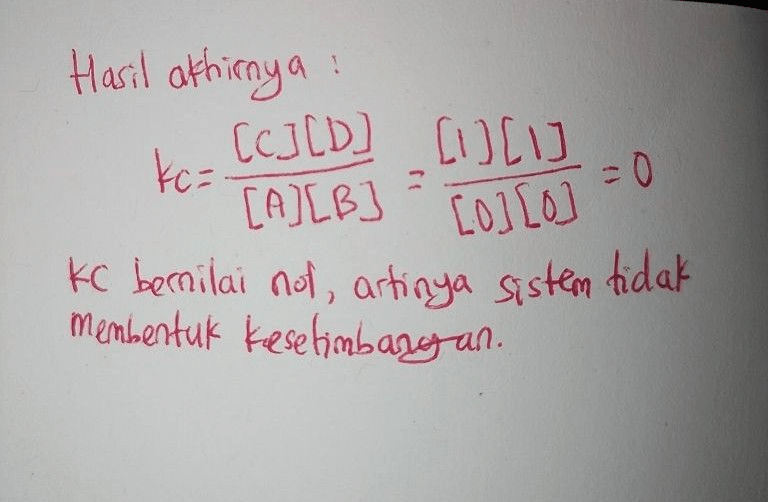 Hasil akhirnya :
Kc = [C][D] / [A][B] = [1][1] / [0][0] = 0
KC bernilai nol, artinya sistem tidak
membentuk kesetimbangan.